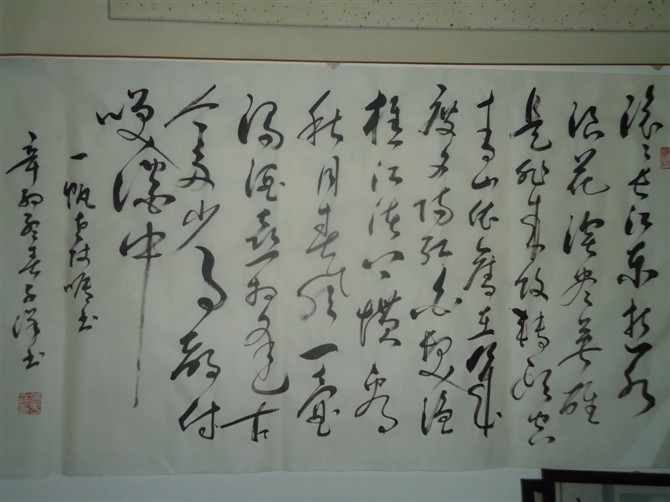 滚滚长江东逝水
浪花淘尽英雄
是非成败转头空
青山依旧在几
度夕阳红白发渔
樵江渚上惯看
秋月春风一壶
浊酒喜相逢古
今多少事都付
笑谈中
一帆书
辛卯春子洋书